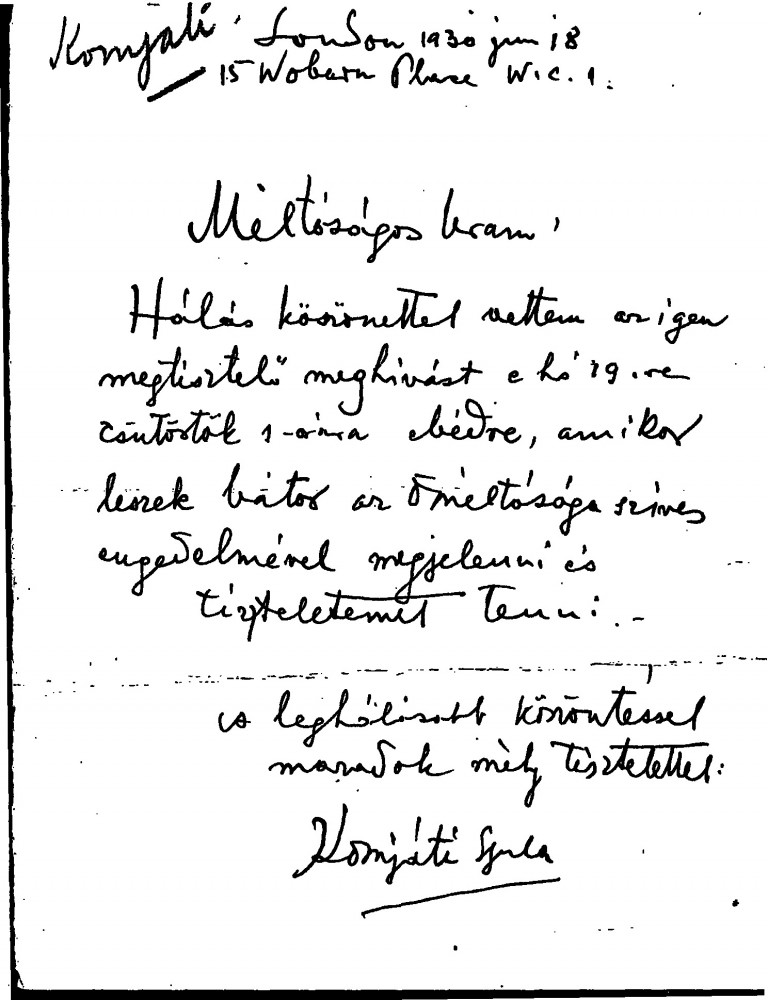 Komjáti
London 1930 jun 18
15 Woburn Place W.C.1.
Méltóságos Uram,
Hálás köszönettel vettem az igen
megtisztelő meghivást e hó 19.-re
csütörtök 1-órára ebédre, amikor
leszek bátor az Őméltósága szives
engedelmével megjelenni és
tiszteletemet tenni.-
a leghálásabb köszöntéssel
maradok mély tisztelettel:
Komjáti Gyula